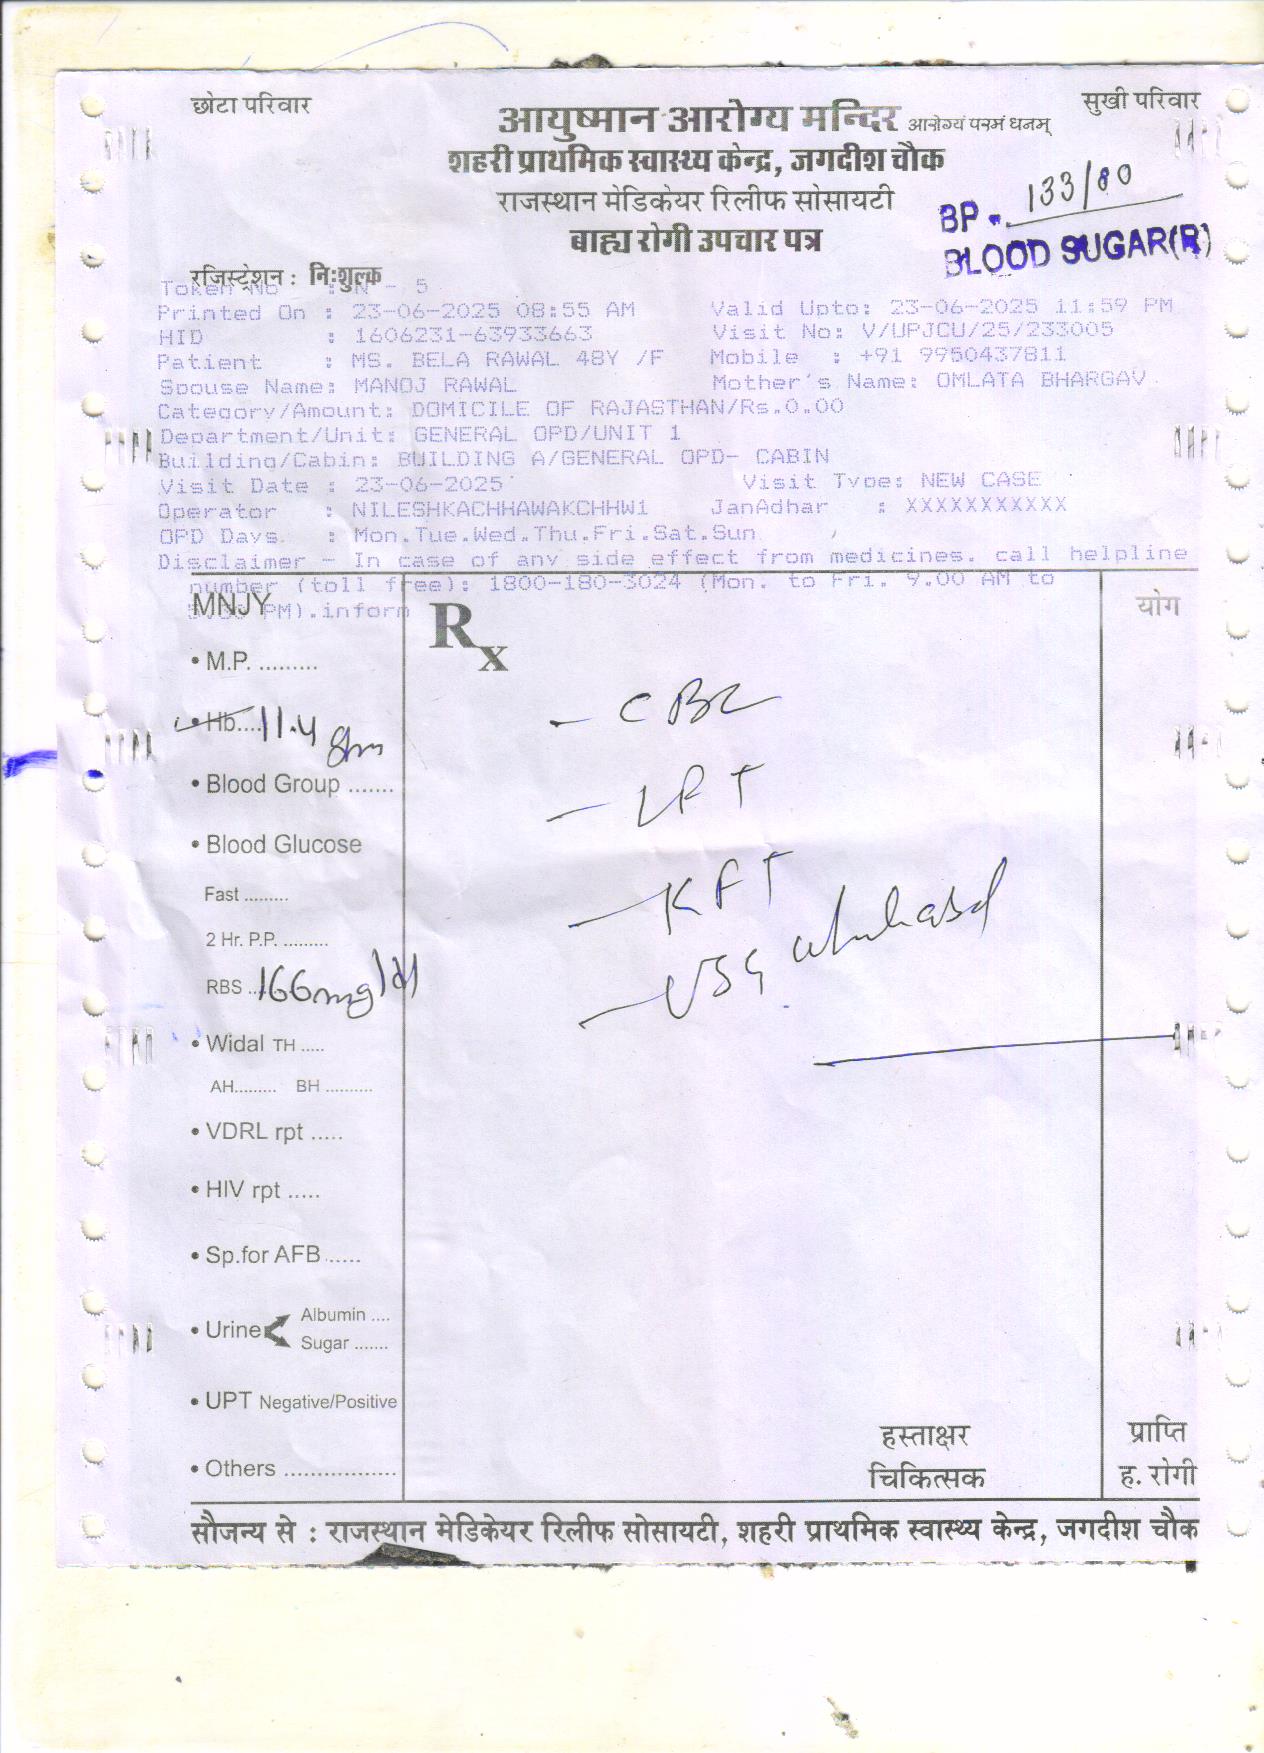 छोटा परिवार
सुखी परिवार
आयुष्मान आरोग्य मन्दिर आरोग्यं परमं धनम्
शहरी प्राथमिक स्वास्थ्य केन्द्र, जगदीश चौक
राजस्थान मेडिकेयर रिलीफ सोसायटी
बाह्य रोगी उपचार पत्र
BP. 133/80
BLOOD SUGAR(R)
रजिस्ट्रेशन : नि:शुल्क
Token No : N - 5
Printed On : 23-06-2025 08:55 AM Valid Upto: 23-06-2025 11:59 PM
HID : 1606231-63933663 Visit No: V/UPJCU/25/233005
Patient : MS. BELA RAWAL 48Y /F Mobile : +91 9950437811
Spouse Name: MANOJ RAWAL Mother's Name: OMLATA BHARGAV
Category/Amount: DOMICILE OF RAJASTHAN/Rs.0.00
Department/Unit: GENERAL OPD/UNIT 1
Building/Cabin: BUILDING A/GENERAL OPD- CABIN
Visit Date : 23-06-2025 Visit Type: NEW CASE
Operator : NILESHKACHHAWAKCHHW1 JanAdhar : XXXXXXXXXXX
OPD Days : Mon.Tue.Wed.Thu.Fri.Sat.Sun
Disclaimer - In case of any side effect from medicines. call helpline
number (toll free): 1800-180-3024 (Mon. to Fri. 9.00 AM to
PM).inform
MNJY
Rx
योग
• M.P. .........
• Hb.... 11.4 gm
• Blood Group .......
• Blood Glucose
Fast .........
2 Hr. P.P. .........
RBS ..... 166mg/dl
• Widal TH .....
AH......... BH ..........
• VDRL rpt .....
• HIV rpt .....
• Sp.for AFB ......
• Urine Albumin ....
Sugar .......
• UPT Negative/Positive
• Others .................
- CBC
- LFT
- KFT
- USG
हस्ताक्षर
चिकित्सक
प्राप्ति
ह. रोगी
सौजन्य से : राजस्थान मेडिकेयर रिलीफ सोसायटी, शहरी प्राथमिक स्वास्थ्य केन्द्र, जगदीश चौक